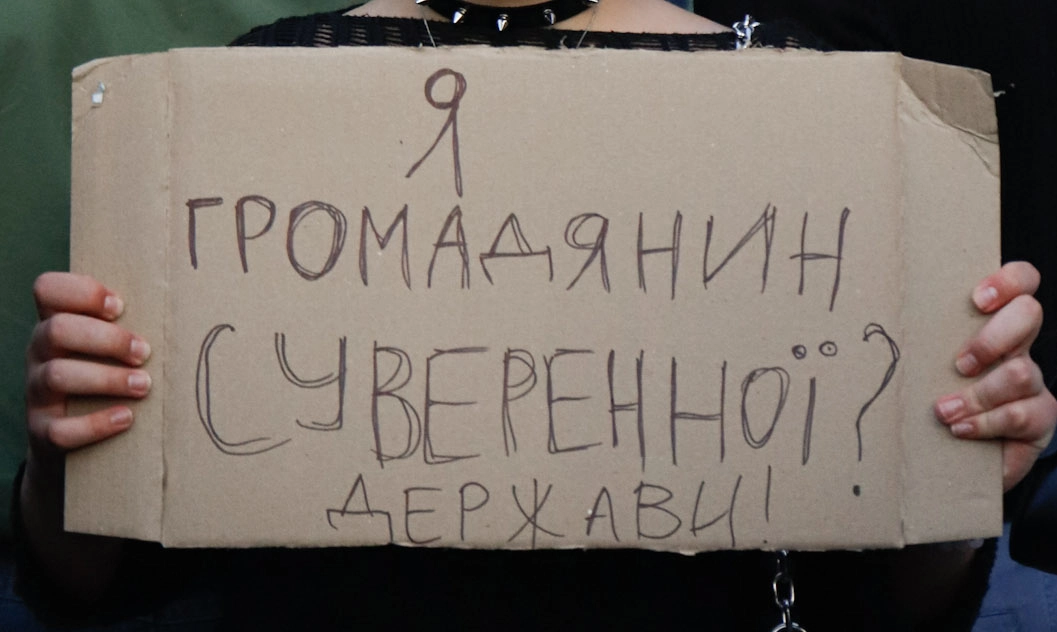 Я
ГРОМАДЯНИН
СУВЕРЕННОЇ?
ДЕРЖАВИ!